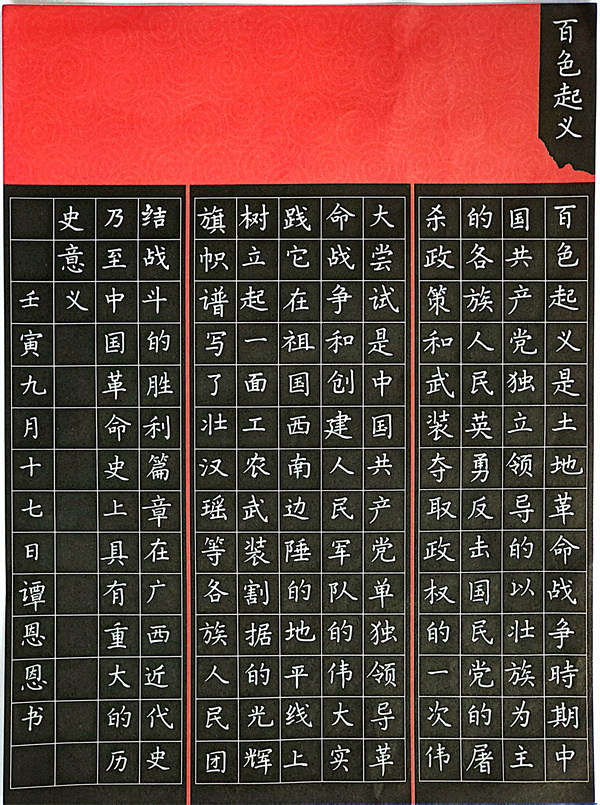 百色起义
百色起义是土地革命战争時期中
国共产党独立领导的以壮族为主
的各族人民英勇反击国民党的屠
杀政策和武装夺取政权的一次伟
大尝试是中国共产党单独领导革
命战争和创建人民军队的伟大实
践它在祖国西南边陲的地平线上
树立起一面工农武装割据的光辉
旗帜谱写了壮汉瑶等各族人民团
结战斗的胜利篇章在广西近代史
乃至中国革命史上具有重大的历
史意义
壬寅九月十七日谭恩恩书